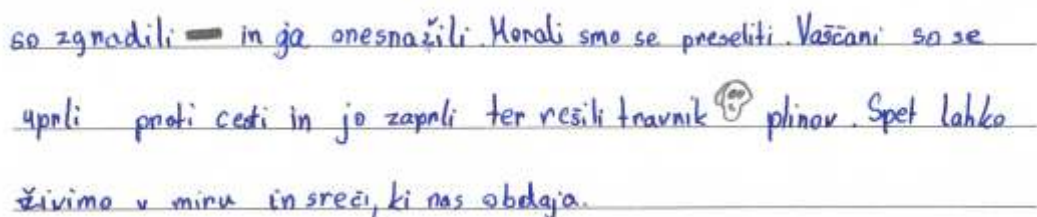 so zgradili in ga onesnažili. Morali smo se preseliti. Vaščani so se
uprli proti cesti in jo zaprli ter rešili travnik plinov. Spet lahko
živimo v miru in sreči, ki nas obdaja.